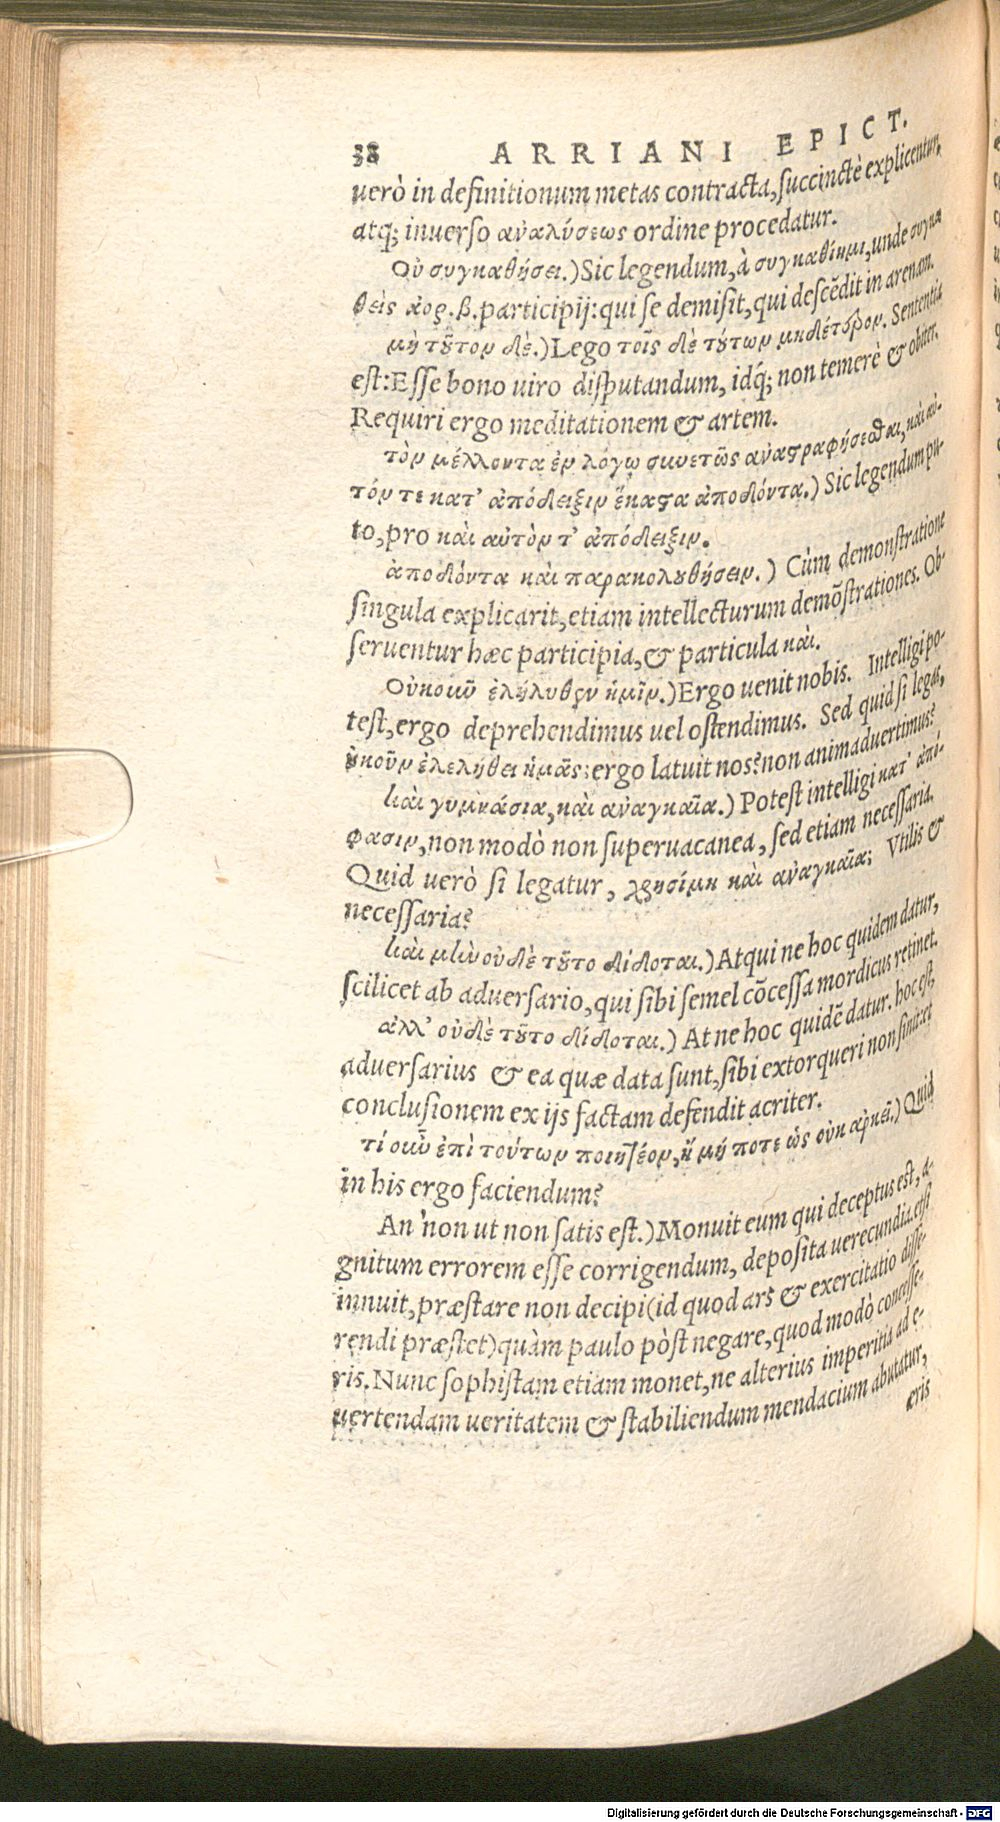 38 ARRIANI EPICT.
uerò in definitionum metas contracta, succinctè explicentur,
atq; inuerso ἀναλύσεως ordine procedatur.
Οὐ συγκαθήσει.) Sic legendum, à συγκαθίημι, unde συγκα
θεὶς ἀορ. β. participij: qui se demisit, qui descēdit in arenam.
μὴ τοῦτον δὲ.) Lego τοῖς δὲ τούτων μηδέτερον. Sententia
est: Esse bono uiro disputandum, idq́; non temerè & obiter.
Requiri ergo meditationem & artem.
τὸν μέλλοντα ἐν λόγῳ συνετῶς ἀναστραφήσεσθαι, καὶ αὐ-
τόν τε κατ' ἀπόδειξιν ἕκαστα ἀποδόντα.) Sic legendum pu-
to, pro καὶ αὐτὸν τ' ἀπόδειξιν.
ἀποδόντα καὶ παρακολουθήσειν.) Cùm demonstratione
singula explicarit, etiam intellecturum demōstrationes. Ob-
seruentur hæc participia, & particula καὶ.
Οὐκοῦν ἐλήλυθεν ἡμῖν.) Ergo uenit nobis. Intelligi po-
test, ergo deprehendimus uel ostendimus. Sed quid si legas,
οὐκοῦν ἐλελήθει ἡμᾶς; ergo latuit nos? non animaduertimus?
καὶ γυμνάσια, καὶ ἀναγκαῖα.) Potest intelligi κατ' ἀπό-
φασιν, non modò non superuacanea, sed etiam necessaria.
Quid uerò si legatur, χρησίμη καὶ ἀναγκαῖα; Vtilis &
necessaria?
καὶ μὴν οὐδὲ τοῦτο δίδοται.) Atqui ne hoc quidem datur,
scilicet ab aduersario, qui sibi semel cōcessa mordicus retinet.
ἀλλ' οὐδὲ τοῦτο δίδοται.) At ne hoc quidē datur. hoc est,
aduersarius & ea quæ data sunt, sibi extorqueri non sinit: et
conclusionem ex ijs factam defendit acriter.
τί οὖν ἐπὶ τούτων ποιητέον, ἤ μή ποτε ὡς οὐκ ἀρκεῖ.) Quid
in his ergo faciendum?
An' non ut non satis est.) Monuit eum qui deceptus est, a-
gnitum errorem esse corrigendum, deposita uerecundia. etsi
innuit, præstare non decipi (id quod ars & exercitatio disse-
rendi præstet) quàm paulo pòst negare, quod modò concesse-
ris. Nunc sophistam etiam monet, ne alterius imperitia ad e-
uertendam ueritatem & stabiliendum mendacium abutatur,
eris
Digitalisierung gefördert durch die Deutsche Forschungsgemeinschaft - DFG